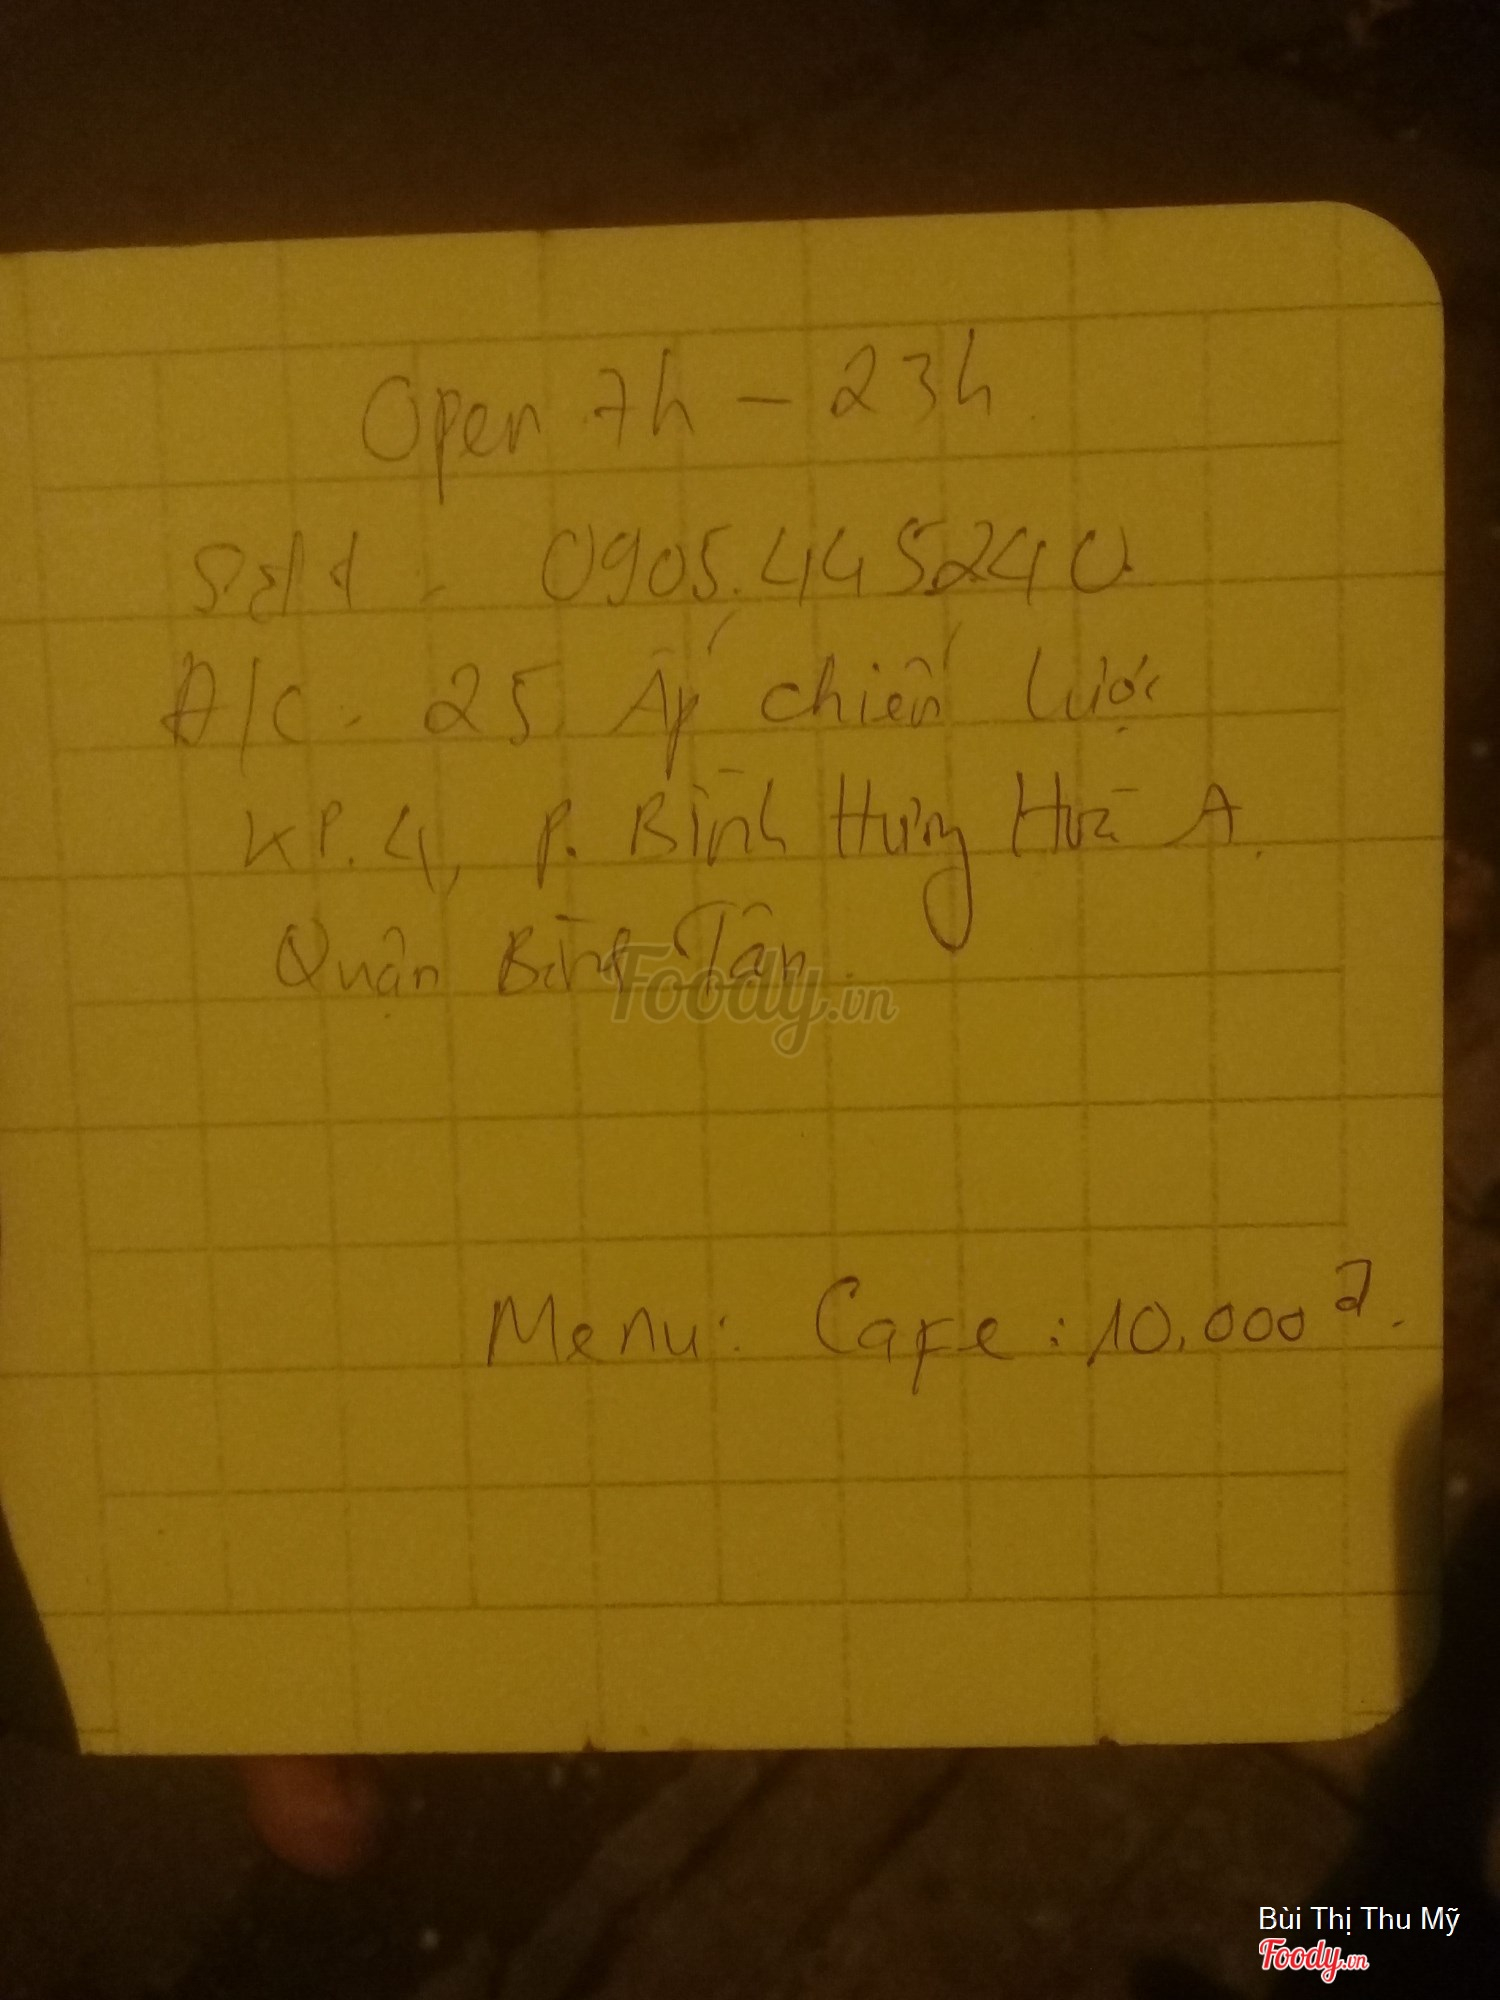 Open 7h - 23h
Sđt : 0905.445240
Đ/C : 25 Ấp chiến lược
KP.4, P. Bình Hưng Hoà A.
Quận Bình Tân.
Foody.vn
Menu: Cafe : 10.000đ.
Bùi Thị Thu Mỹ
Foody.vn